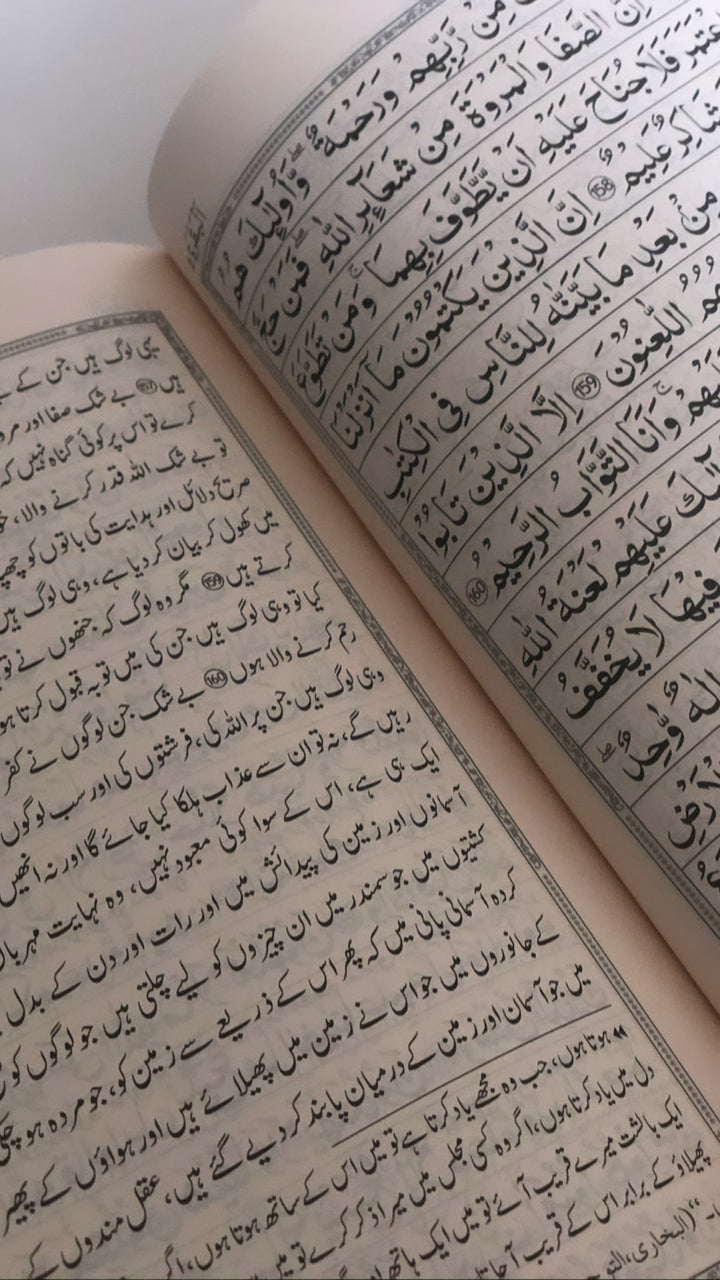 مِّنْ رَّبِّهِمْ وَرَحْمَةٌ ۟ وَّاُولٰٓىِٕكَ هُمُ
اِنَّ الصَّفَا وَالْمَرْوَةَ مِنْ شَعَآىِٕرِ اللّٰهِ ۚ فَمَنْ حَجَّ
اعْتَمَرَ فَلَا جُنَاحَ عَلَيْهِ اَنْ يَّطَّوَّفَ بِهِمَا ؕ وَمَنْ تَطَوَّعَ
شَاكِرٌ عَلِيْمٌ 158 اِنَّ الَّذِيْنَ يَكْتُمُوْنَ مَاۤ اَنْزَلْنَا
مِنْۢ بَعْدِ مَا بَيَّنّٰهُ لِلنَّاسِ فِي الْكِتٰبِ
اللّٰعِنُوْنَ 159 اِلَّا الَّذِيْنَ تَابُوْا
وَاَنَا التَّوَّابُ الرَّحِيْمُ 160
عَلَيْهِمْ لَعْنَةُ اللّٰهِ
فِيْهَا ۚ لَا يُخَفَّفُ
اِلٰهٌ وَّاحِدٌ ۚ
یہی لوگ ہیں جن کے
ہیں 157 بے شک صفا اور
کرے تو اس پر کوئی گناہ نہیں کہ
تو بے شک اللہ قدر کرنے والا،
صریح دلائل اور ہدایت کی باتوں کو
میں کھول کر بیان کر دیا ہے، وہی لوگ ہیں
کرتے ہیں 159 مگر وہ لوگ کہ جنھوں نے
کیا تو وہی لوگ ہیں جن کی میں توبہ قبول کرتا
رحم کرنے والا ہوں 160 بے شک جن لوگوں نے کفر
وہی لوگ ہیں جن پر اللہ کی، فرشتوں کی اور سب لوگوں
رہیں گے، نہ تو ان سے عذاب ہلکا کیا جائے گا اور نہ انھیں
ایک ہی ہے، اس کے سوا کوئی معبود نہیں، وہ نہایت مہربان
آسمانوں اور زمین کی پیدائش میں اور رات اور دن کے بدل
کشتیوں میں جو سمندر میں ان چیزوں کو لیے چلتی ہیں جو لوگوں کو
کردہ آسمانی پانی میں کہ پھر اس کے ذریعے سے زمین کو، جو مردہ ہو
کے جانوروں میں جو اس نے زمین میں پھیلائے ہیں اور ہواؤں کے پھیر
میں جو آسمان اور زمین کے درمیان پابند کر دیے گئے ہیں، عقل مندوں کے
ہوتا ہوں، جب وہ مجھے یاد کرتا ہے تو میں اس کے ساتھ ہوتا ہوں، اگر
دل میں یاد کرتا ہوں، اگر وہ کسی مجلس میں میرا ذکر کرے تو میں
ایک بالشت میرے قریب آئے تو میں ایک ہاتھ
پھیلاؤ کے برابر اس کے قریب آ جاتا
(البخاری،